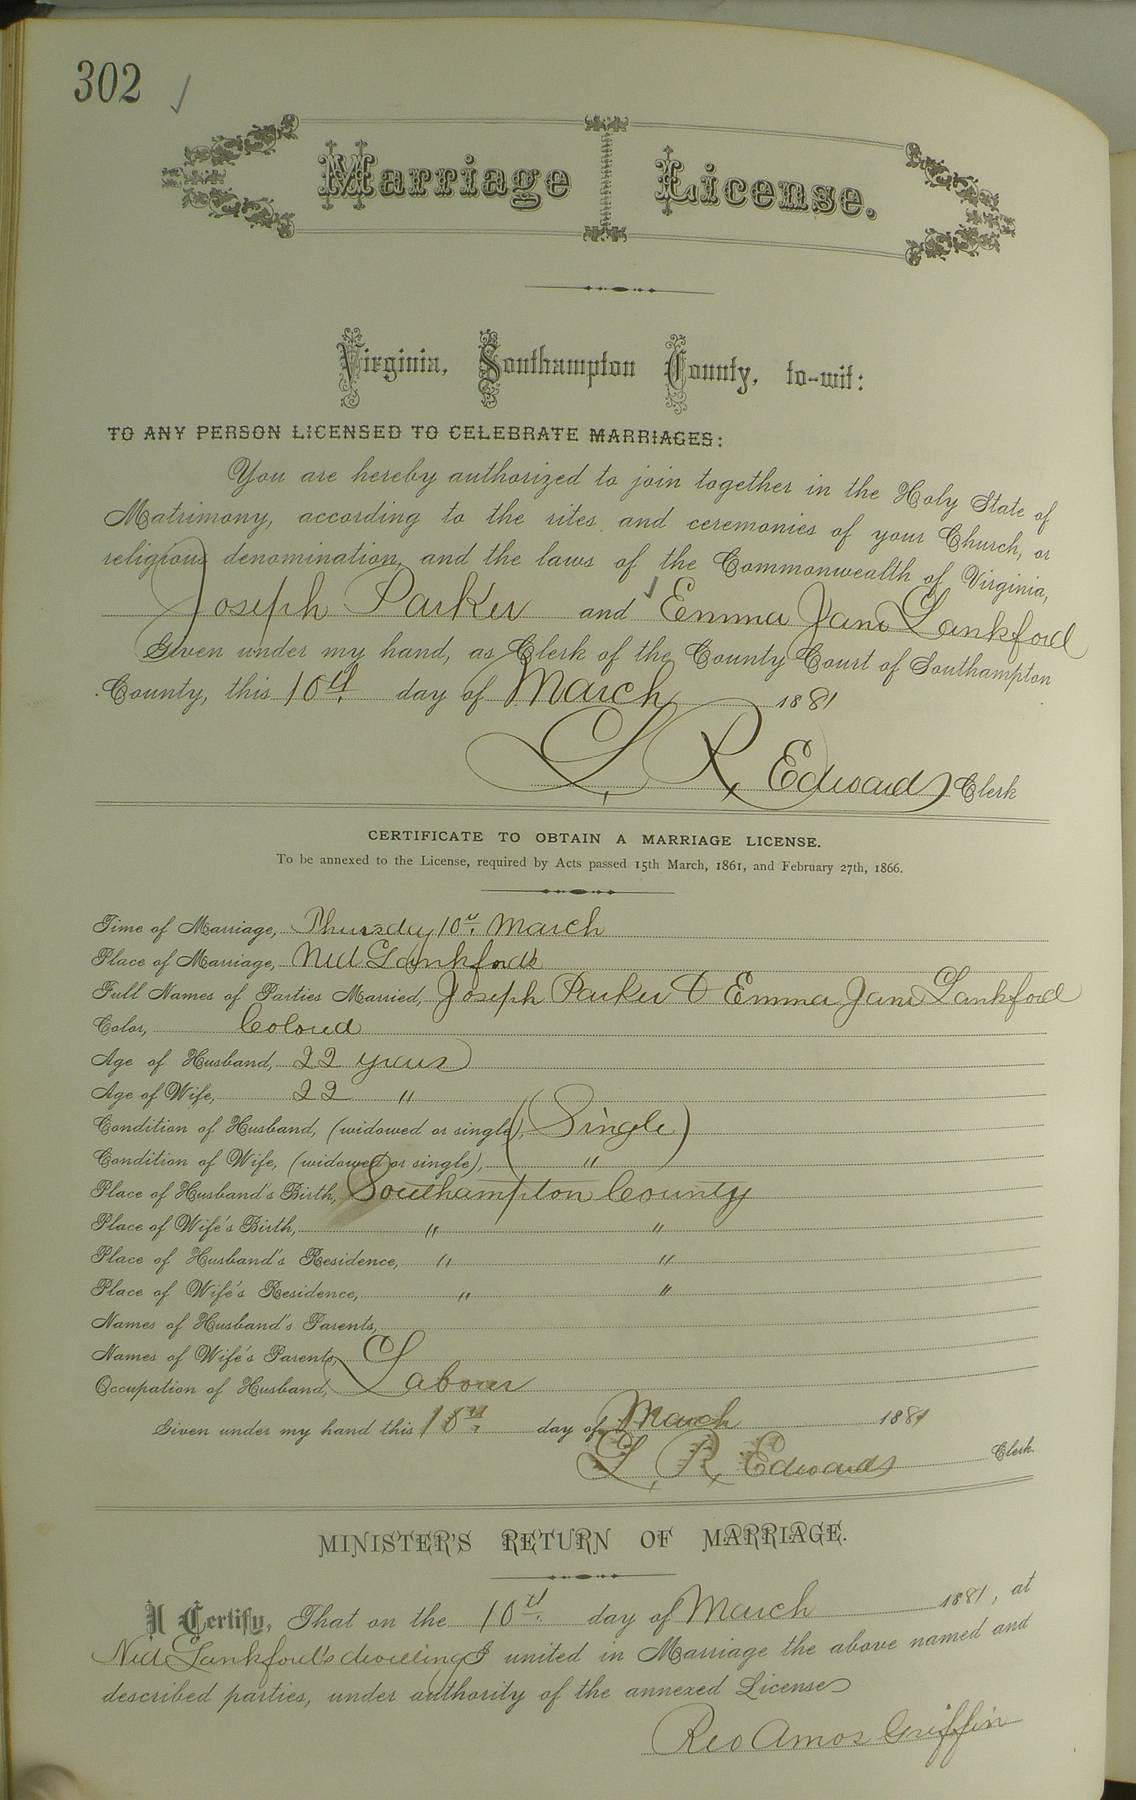 302
Marriage License.
Virginia, Southampton County, to-wit:
TO ANY PERSON LICENSED TO CELEBRATE MARRIAGES:
You are hereby authorized to join together in the Holy State of
Matrimony, according to the rites and ceremonies of your Church, or
religious denomination, and the laws of the Commonwealth of Virginia,
Joseph Parker and Emma Jane Lankford
Given under my hand, as Clerk of the County Court of Southampton
County, this 10th day of March 1881
L. R. Edwards Clerk
CERTIFICATE TO OBTAIN A MARRIAGE LICENSE.
To be annexed to the License, required by Acts passed 15th March, 1861, and February 27th, 1866.
Time of Marriage, Thursday 10th March
Place of Marriage, Ned Lankfords
Full Names of Parties Married, Joseph Parker & Emma Jane Lankford
Color, Colored
Age of Husband, 22 years
Age of Wife, 22 "
Condition of Husband, (widowed or single), Single
Condition of Wife, (widowed or single), "
Place of Husband's Birth, Southampton County
Place of Wife's Birth, " "
Place of Husband's Residence, " "
Place of Wife's Residence, " "
Names of Husband's Parents,
Names of Wife's Parents,
Occupation of Husband, Labour
Given under my hand this 10th day of March 1881
L. R. Edwards Clerk.
MINISTER'S RETURN OF MARRIAGE.
I Certify, That on the 10th day of March 1881, at
Ned Lankford's dwelling I united in Marriage the above named and
described parties, under authority of the annexed License
Rev Amos Griffin